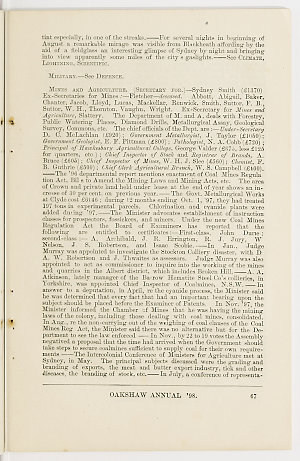 tist especially, in one of the streaks.—For several nights in beginning of
August a remarkable mirage was visible from Blackheath affording by the
aid of a fieldglass an interesting glimpse of Sydney by night and bringing
into view apparently some miles of the city's gaslights.—See CLIMATE,
LIGHTNING, SCIENTIFIC.
MILITARY.—See DEFENCE.
MINES AND AGRICULTURE. (SECRETARY FOR.)—Sydney Smith (£1370)
Ex-Secretaries for Mines:—Fletcher—deceased, Abbott, Abigail, Baker,
Chanter, Jacob, Lloyd, Lucas, Mackellar, Renwick, Smith, Suttor, F. B.,
Suttor, W. H., Thornton, Vaughn, Wright. Ex-Secretary for Mines and
Agriculture, Slattery. The Department of M. and A. deals with Forestry,
Public Watering Places, Diamond Drills, Metallurgical Assay, Geological
Survey, Commons, etc. The chief officials of the Dept. are:
D. C. McLachlan
Government Geologist, E. F. Pittman (£800); Pathologist, N. A. Cobb
Principal of Hawkesbury Agricultural College, George Valder
for quarters, etc.); Chief Inspector of Stock and Registrar of Brands, A.
Bruce; Chief Inspector of Mines, W. H. J. Slee; Chemist, F.
B. Guthrie; Chief Clerk Agricultural Branch, W. S. Campbell
The '96 departmental report mentions enactment of Coal Mines Regula-
tion Act, and Act to Amend the Mining Laws and Mining Acts, etc. Area
of Crown and private land held under lease at the end of year shows an in-
crease of 30 per cent on previous year.—The Govt. Metallurgical Works
at Clyde cost; during 12 months ending Oct. 1, '97, they had treated
197 tons in experimental parcels. Chlorination and cyanide plants were
added during '97.—The Minister advocates establishment of instruction
classes for prospectors, fossickers, and miners. Under the new Coal Mines
Regulation Act the Board of Examiners has reported that the
following are entitled to certificates:—First-class, John Durie;
second-class:—A. Archibald, J. R. Errington, R. J. Jury, W.
Nelson, J. S. Robertson, and Isaac Scobie.—In Jan. Judge
Murray was appointed to investigate the Stockton Colliery disaster, with D.
A. W. Robertson and J. Thwaites as assessors. Judge Murray was also
appointed to act as commissioner to inquire into the working of the mines
and quarries in the Albert district, which includes Broken Hill.—A. A.
Atkinson, lately manager of the Barrow Hematite Steel Co's collieries, in
Yorkshire, was appointed Chief Inspector of Coalmines, N.S.W.—In
answer to a deputation, in April, re the cyanide process, the Minister said
he was determined that every fact that had an important bearing upon the
subject should be placed before the Examiner of Patents. In Nov. '97, the
Minister informed the Chamber of Mines that he was having the mining
laws of the colony, including those dealing with coal mines, consolidated.
In Aug., re the non-carrying out of the weighing of coal clauses of the Coal
Mines Reg Act, the Minister said there was no alternative but for the De-
partment to see the law enforced.—In Nov., by 22 to 19 votes the Assembly
negatived a proposal that the time had arrived when the Government should
take steps to secure coalmines sufficient to supply coal for their own require-
ments—The Intercolonial Conference of Ministers for Agriculture met at
Sydney, in May. The principal subjects discussed were the grading and
branding of exports, the meat and butter export industry, tick and other
diseases, the branding of stock, etc.—In July, a conference of representa-
OAKSHAW ANNUAL '98. 67